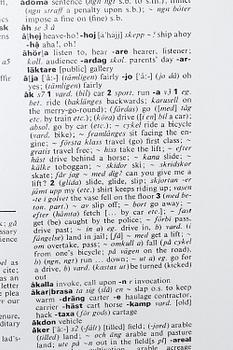 ådöma sentence (ngn ngt s.b. to s.th.), impose
(ngn straff a penalty upon s.b.); ~ ngn böter
impose a fine on (fine) s.b.
åh se 3 å
å|hej heave-ho! -hoj [å'håjj] skepp ~! ship ahoy
-hå aha!, oh!
åhör|a listen to, hear -are hearer, listener;
koll. audience -ardag skol. parents' day -ar-
läktare [public] gallery
åja [å:-] (tämligen) fairly -jo [å:-] (jo då) oh
yes; (tämligen) fairly
åk s7 1 vard. (bil) car 2 sport. run -a v3 1 eg.
bet. ride (baklänges backwards; karusell on
the merry-go-round); (färdas) go ([med] tåg
etc. by train etc.); (köra) drive ([i en] bil a car);
absol. go by car (etc.); ~ cykel ride a bicycle
(vard. bike); ~ framlänges sit facing the en-
gine; ~ första klass travel (go) first class; ~
gratis travel free; ~ hiss take the lift; ~ efter
häst drive behind a horse; ~ kana slide; ~
kälke toboggan; ~ skidor ski; ~ skridskor
skate; får jag ~ med dig? can you give me a
lift? 2 (glida) slide, glide, slip; skjortan ~r
jämt upp my (etc.) shirt keeps riding up; vasen
~e i golvet the vase fell on the floor 3 (med be-
ton. part.) ~ av slip off; ~ bort go away; ~
efter (hämta) fetch [... by car etc.]; ~ fast
get (be) caught by the police; ~ förbi pass,
drive past; ~ in a) eg. drive in, b) vard. (i
fängelse) land in jail; [få] ~ med get a lift; ~
om overtake, pass; ~ omkull a) fall (på cykel
from one's bicycle; på vägen on the road),
b) (ngn, ngt) run ... down; ~ ut a) eg. go for
a drive, b) vard. (kastas ut) be turned (kicked)
out
åkalla invoke, call upon -n r invocation
åkar|brasa ta sig (slå) en ~ slap o.s. to keep
warm -dräng carter -e haulage contractor,
carrier -häst cart horse -kamp vard. [old]
hack -taxa (för gods) cartage
åkdon vehicle
åker [å:-] s2 (-fält) [tilled] field; (-jord) arable
(tilled) land; ~ och äng arable and pasture
land; ute på ~n out in the field[s pl] -areal